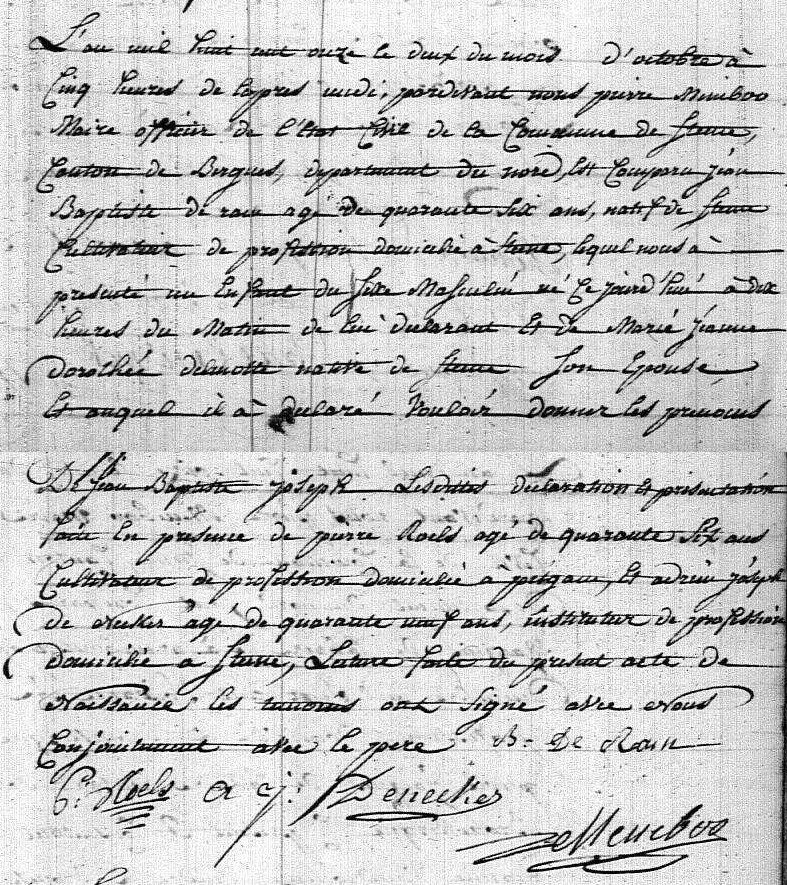 L'an mil huit cent onze le deux du mois d'octobre à
Cinq heures de lapres midi, pardevant nous pierre Meneboo
Maire officier de l'Etat Civil de la Commune de Steene,
Canton de Bergues, departement du nord, Est Comparu jean
Baptiste de ram agé de quarante Six ans, natif de Steene
Cultivateur de profession domicilié à Steene, lequel nous à
presenté un Enfant du Sexe Masculin né Ce jourd'hui à dix
heures du Matin de lui declarant Et de Marie jeanne
dorothée delmotte native de Steene Son Epouse
Et auquel il à declaré Vouloir donner les prenoms
De jean Baptiste joseph Lesdittes declaration Et presentation
faite En presence de pierre Roels agé de quarante Six ans
Cultivateur de profession domicilié a pitgam, Et adrien joseph
de Necker agé de quarante neuf ans, instituteur de profession
domicilié a Steene, Lecture faite du present acte de
Naissance les temoins ont Signé avec Nous
Conjointement avec le pere B. De Ram
P. Roels A J. Denecker
Meneboo